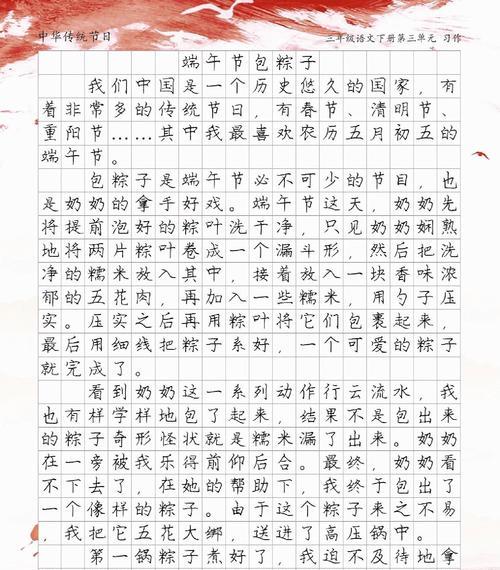 中华传统节日
三年级语文下册第三单元 习作
端午节包粽子
我们中国是一个历史悠久的国家，有
着非常多的传统节日，有春节、清明节、
重阳节……其中我最喜欢农历五月初五的
端午节。
包粽子是端午节必不可少的节目，也
是奶奶的拿手好戏。端午节这天，奶奶先
将提前泡好的粽叶洗干净，只见奶奶娴熟
地将两片粽叶卷成一个漏斗形，然后把洗
净的糯米放入其中，接着放入一块香味浓
郁的五花肉，再加入一些糯米，用勺子压
实。压实之后再用粽叶将它们包裹起来，
最后用细线把粽子系好，一个可爱的粽子
就完成了。
看到奶奶这一系列动作行云流水，我
也有样学样地包了起来，结果不是包出来
的粽子奇形怪状就是糯米漏了出来。奶奶
在一旁被我乐得前仰后合。最终，奶奶看
不下去了，在她的帮助下，我终于包出了
一个像样的粽子。由于这个粽子来之不易
，我把它五花大绑，送进了高压锅中。
第一锅粽子煮好了，我迫不及待地拿